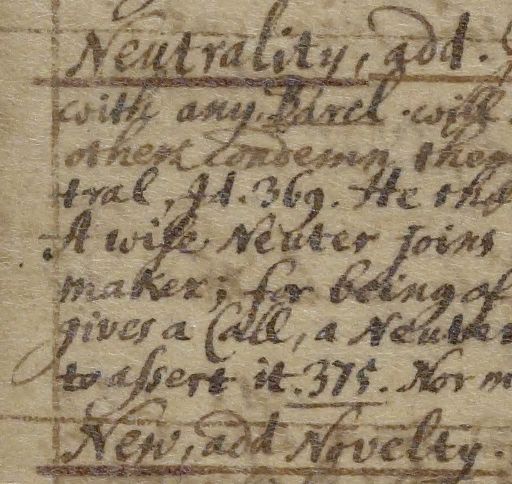 Neutrality, add.
with any Parcl. will
others Condemn them
tral, Id. 369. He tha
A wise Neuter joins
maker; for being of
gives a Call, a Neuter
to assert it. 375. Nor m
New, add Novelty.